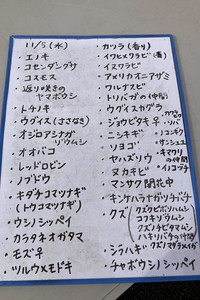 11/5 (水)
・エノキ
・コセンダングサ
・コスモス
・返り咲きの
ヤマボウシ
・トチノキ
・ウグイス(ささなき)
・オジロアシナガ
ゾウムシ
・オオバコ
・レッドロビン
・ノブドウ
・キダチコマツナギ
(トウコマツナギ)
・ウシノシッペイ
・カラタネオガタマ
・モズ♀
・ツルウメモドキ
・カツラ(香り)
・イワヒメワラビ(春)
・イヌワラビ
・アメリカオニアザミ
・ワルナスビ
・トリバガの仲間
・ウグイスカグラ
・ジョウビタキ♀
・ニシキギ
・ソヨゴ
・ヤハズソウ
・ヌカキビ
・マンサク開花中
・キンケハラナガツチバチ
・クズ
クズクビボソハムシ
コフキゾウムシ
クズノチビタマムシ
ハキリバチの仲間
クズマダラミズメイガ
・シラハギ
・チャボウシノシッペイ
・ノコギク
・オンシツ
・キマワリ
の仲間
・イノコヅチ